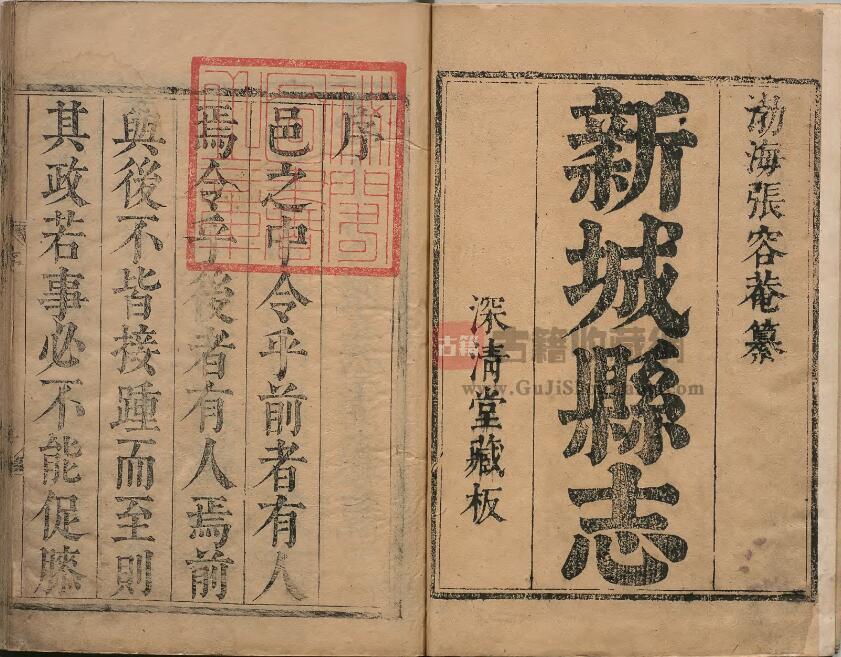 渤海張容菴纂
新城縣志
深清堂藏板
序
邑之中令乎前者有人
焉令乎後者有人焉前
與後不皆接踵而至則
其政若事必不能促膝
古籍
古籍收藏網